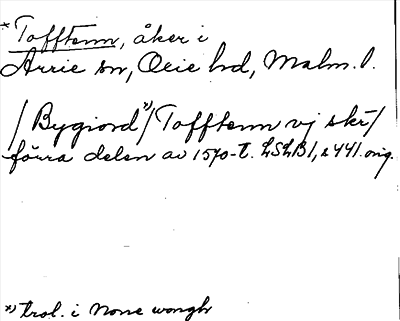 *Tofftenn, åker i
Arrie sn, Oxie hd, Malm. l.
/Bygiord*)/Tofftenn vj skr/
förra delen av 1570-t. LSLB1, s 441. orig.
*) trol. i Norre wongh